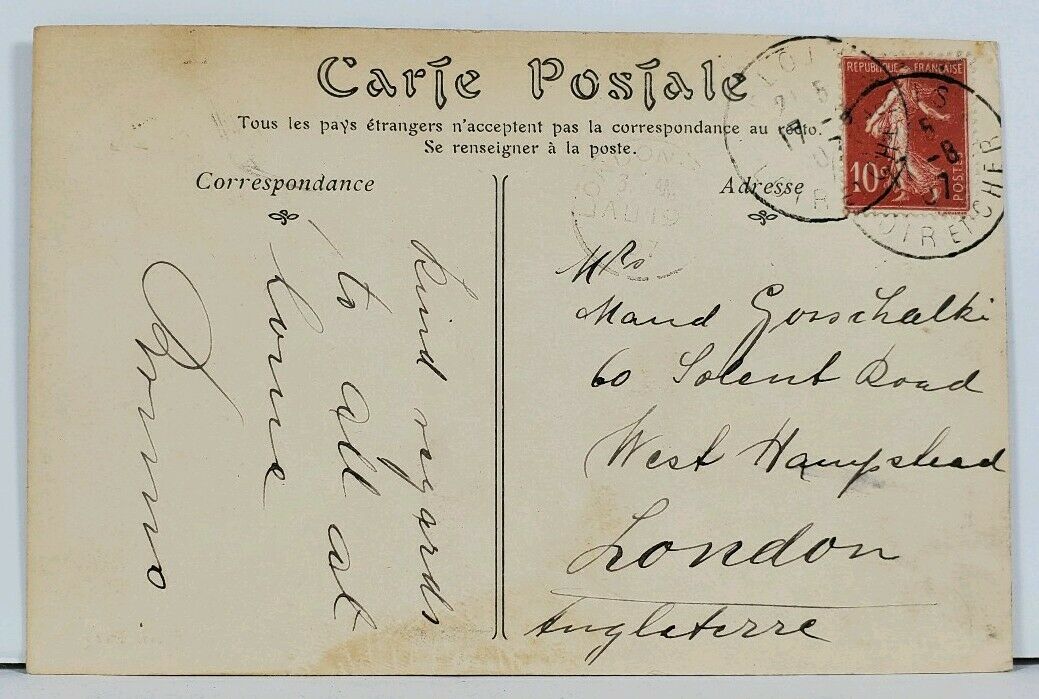 Carte Postale
Tous les pays étrangers n'acceptent pas la correspondance au recto.
Se renseigner à la poste.
Correspondance
Adresse
Kind regards
to all at
home
REPUBLIQUE FRANÇAISE
10c
POSTES
BLOIS
17 -8
LOIR ET CHER
Mrs
Maud Gorschalki
60 Solent Road
West Hampstead
London
Angleterre